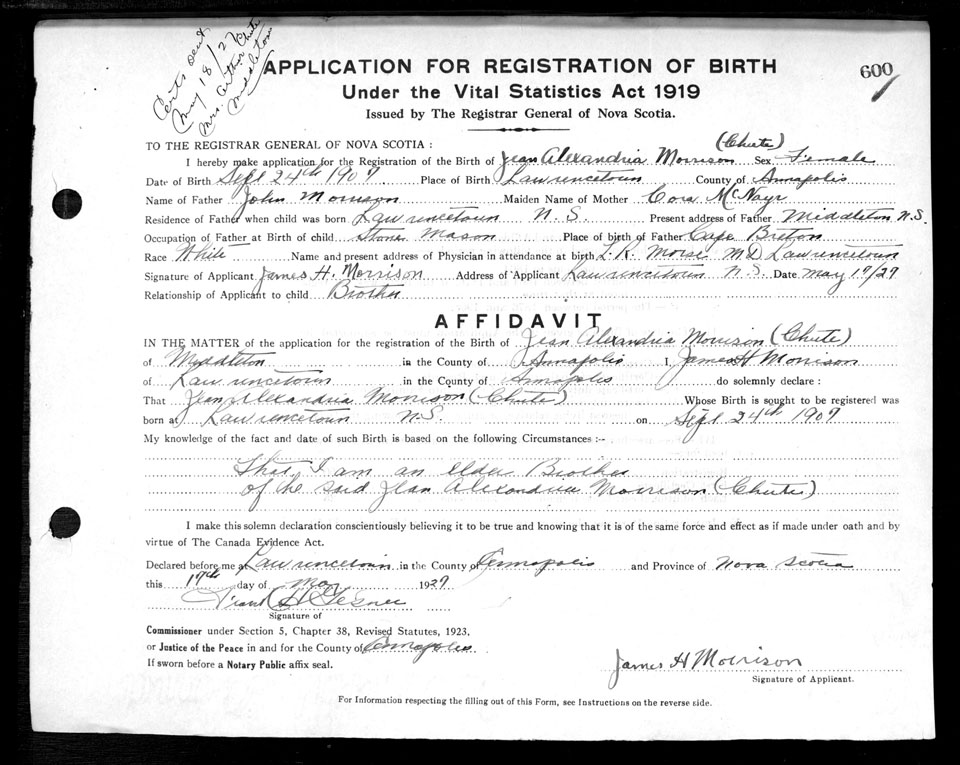 Certs sent
May 18/27
Mrs. Arthur Chute
Middleton
600
APPLICATION FOR REGISTRATION OF BIRTH
Under the Vital Statistics Act 1919
Issued by The Registrar General of Nova Scotia.
TO THE REGISTRAR GENERAL OF NOVA SCOTIA :
I hereby make application for the Registration of the Birth of Jean Alexandria Morrison (Chute) Sex Female
Date of Birth Sept 24th 1907 Place of Birth Lawrencetown County of Annapolis
Name of Father John Morrison Maiden Name of Mother Cora McNayr
Residence of Father when child was born Lawrencetown N. S. Present address of Father Middleton N.S.
Occupation of Father at Birth of child Stone Mason Place of birth of Father Cape Breton
Race White Name and present address of Physician in attendance at birth L. R. Morse M D Lawrencetown
Signature of Applicant James H. Morrison Address of Applicant Lawrencetown N. S. Date May 17/27
Relationship of Applicant to child Brother
AFFIDAVIT
IN THE MATTER of the application for the registration of the Birth of Jean Alexandria Morrison (Chute)
of Middleton in the County of Annapolis I, James H Morrison
of Lawrencetown in the County of Annapolis do solemnly declare :
That Jean Alexandria Morrison (Chute) Whose Birth is sought to be registered was
born at Lawrencetown N.S. on Sept 24th 1907
My knowledge of the fact and date of such Birth is based on the following Circumstances :-
That I am an elder Brother
of the said Jean Alexandria Morrison (Chute)
I make this solemn declaration conscientiously believing it to be true and knowing that it is of the same force and effect as if made under oath and by
virtue of The Canada Evidence Act.
Declared before me at Lawrencetown in the County of Annapolis and Province of Nova Scotia
this 17th day of May 1927
H
Signature of
Commissioner under Section 5, Chapter 38, Revised Statutes, 1923.
or Justice of the Peace in and for the County of Annapolis
If sworn before a Notary Public affix seal.
James H Morrison
Signature of Applicant.
For Information respecting the filling out of this Form, see Instructions on the reverse side.